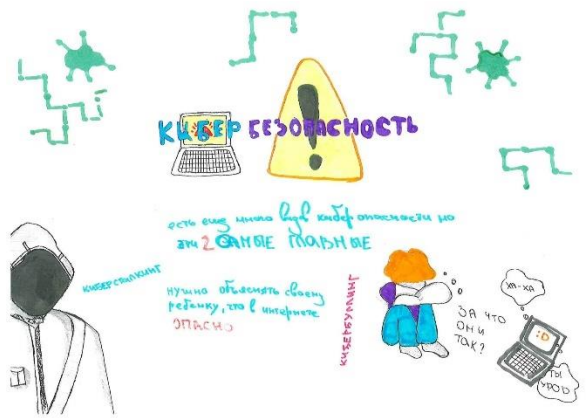 КИБЕР БЕЗОПАСНОСТЬ
есть еще много видв кибер опасности но
эти 2 САМЫЕ ГЛАВНЫЕ
КИБЕРСТАЛКИНГ
нужно объяснять своему
ребенку, что в интернете
ОПАСНО
КИБЕРБУЛЛИНГ
ЗА ЧТО
ОНИ
ТАК?
ХА-ХА
:D
ТЫ
УРОД